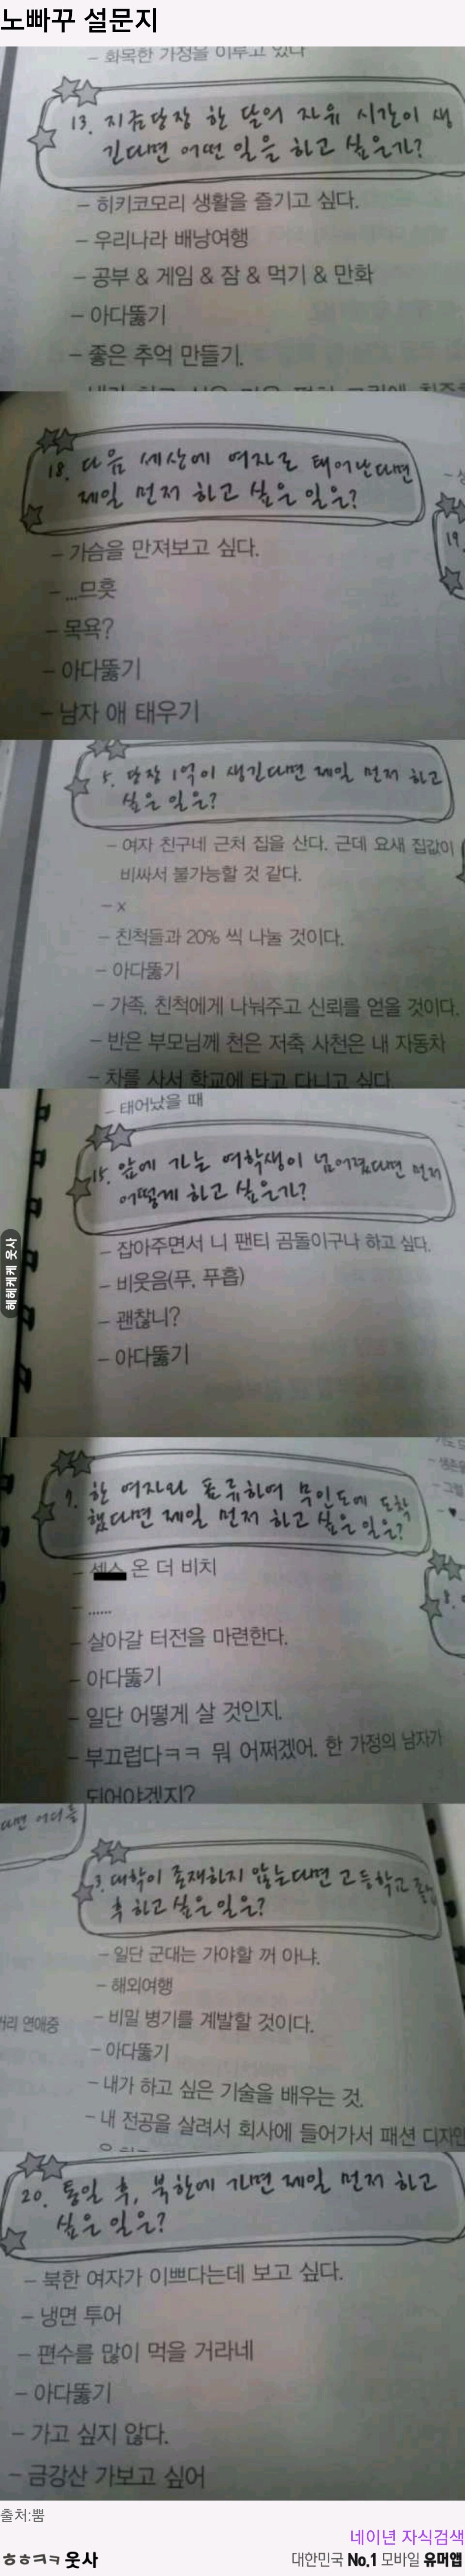 노빠꾸 설문지
- 화목한 가정을 이루고 있다
13. 지금당장 한 달의 자유 시간이 생
긴다면 어떤 일을 하고 싶은가?
- 히키코모리 생활을 즐기고 싶다.
- 우리나라 배낭여행
- 공부 & 게임 & 잠 & 먹기 & 만화
- 아다뚫기
- 좋은 추억 만들기.
18. 다음 세상에 여자로 태어난다면
제일 먼저 하고 싶은 일은?
19.
- 가슴을 만져보고 싶다.
- ...므흣
- 목욕?
- 아다뚫기
- 남자 애 태우기
5. 당장 1억이 생긴다면 제일 먼저 하고
싶은 일은?
- 여자 친구네 근처 집을 산다. 근데 요새 집값이
비싸서 불가능할 것 같다.
- x
- 친척들과 20% 씩 나눌 것이다.
- 아다뚫기
- 가족, 친척에게 나눠주고 신뢰를 얻을 것이다.
- 반은 부모님께 천은 저축 사천은 내 자동차
- 차를 사서 학교에 타고 다니고 싶다.
- 태어났을 때
15. 앞에 가는 여학생이 넘어졌다면 먼저
어떻게 하고 싶은가?
- 잡아주면서 니 팬티 곰돌이구나 하고 싶다.
- 비웃음(푸, 푸흡)
- 괜찮니?
- 아다뚫기
헤헤케케 웃사
7. 한 여자와 표류하여 무인도에 도착
했다면 제일 먼저 하고 싶은 일은?
- 섹스 온 더 비치
- ......
- 살아갈 터전을 마련한다.
- 아다뚫기
- 일단 어떻게 살 것인지.
- 부끄럽다ㅋㅋ 뭐 어쩌겠어. 한 가정의 남자가
되어야겠지?
3. 대학이 존재하지 않는다면 고등학교 졸업
후 하고 싶은 일은?
- 일단 군대는 가야할 꺼 아냐.
- 해외여행
거리 연애중
- 비밀 병기를 계발할 것이다.
- 아다뚫기
- 내가 하고 싶은 기술을 배우는 것.
- 내 전공을 살려서 회사에 들어가서 패션 디자인
20. 통일 후, 북한에 가면 제일 먼저 하고
싶은 일은?
- 북한 여자가 이쁘다는데 보고 싶다.
- 냉면 투어
- 편수를 많이 먹을 거라네
- 아다뚫기
- 가고 싶지 않다.
- 금강산 가보고 싶어
출처:뿜
네이년 자식검색
ㅎㅎㅋㅋ 웃사
대한민국 No.1 모바일 유머앱